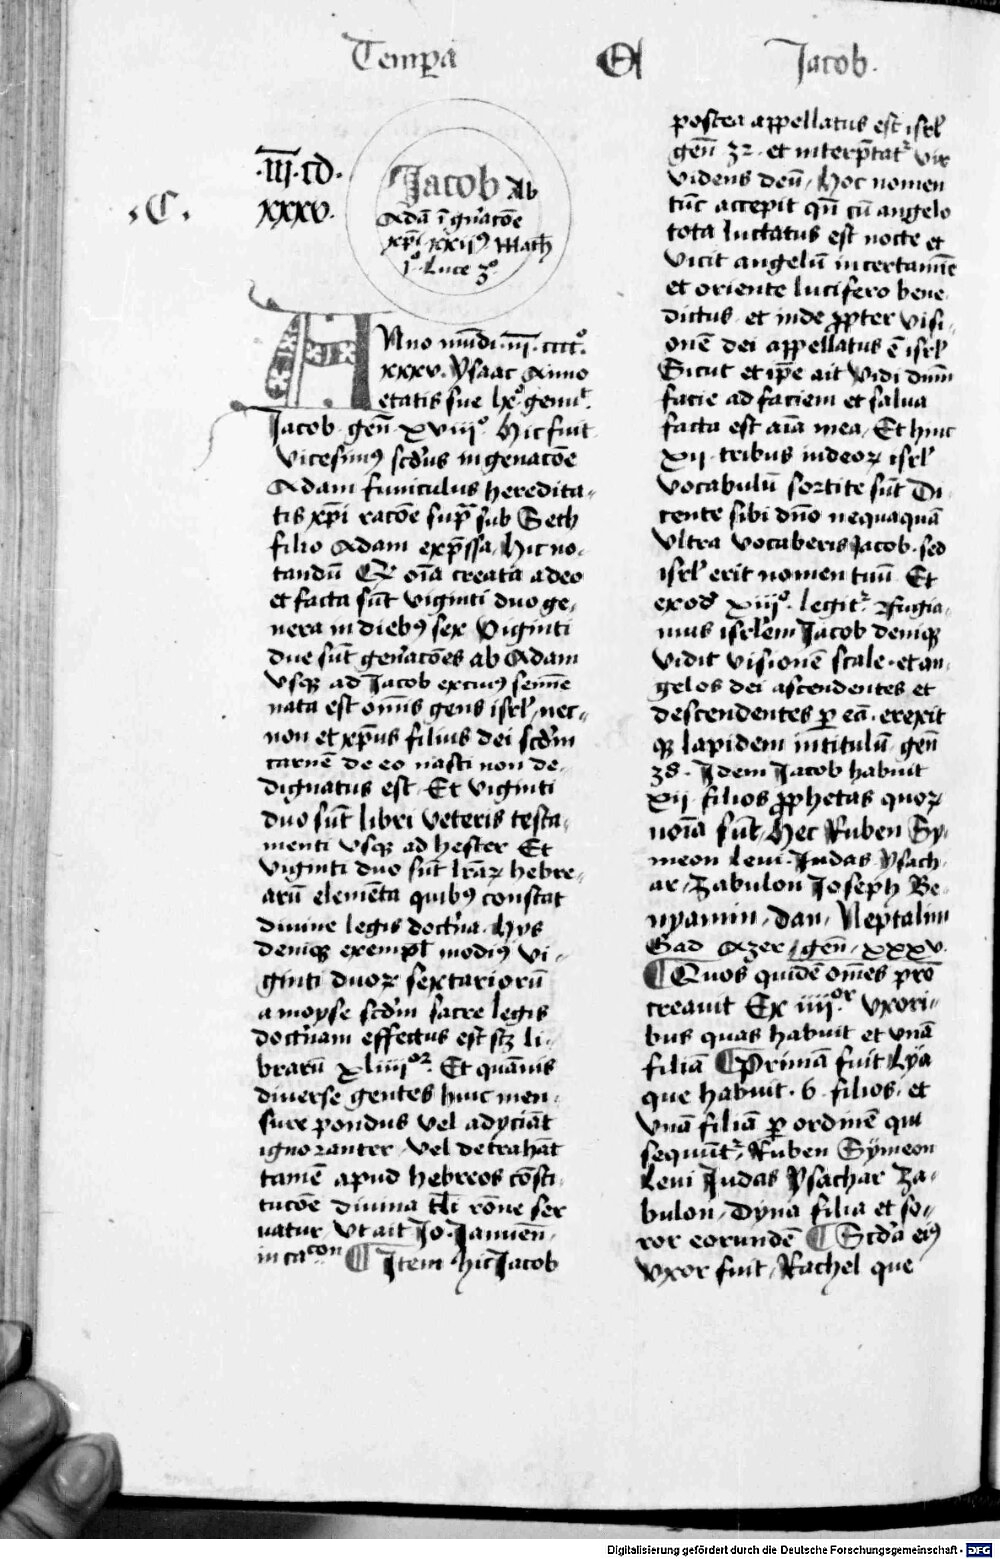 Temp̱a Et Jacob.
.C.
.iij.cd.
xxxv.
Jacob Ab
Adā ī gn̄acōe
xp̄i xxij⁹ Math̄
1° Luce 3°
ANno mūdi .iij. cccc°.
xxxv. Ysaac Anno
etatis sue lx° genuıt
Jacob gen̄ xviij° Hic fuit
vicesim⁹ scd̄us in gen̄acōe
Adam funiculus heredita-
tis xp̄i racōe sup̄ sub Seth
filio Adam exp̄ssa, hic no-
tandū Qꝫ oīa creata a deo
et facta sūt viginti duo ge-
nera in dieb⁹ sex Viginti
due sūt gen̄acōes ab Adam
vsqꝫ ad Jacob ex cui⁹ semīe
nata est omnis gens isrl̄, nec-
non et xp̄us filius dei scd̄m
carnē de eo nasci non de-
dignatus est. Et viginti
duo sūt libri veteris testa-
menti vsqꝫ ad hester Et
viginti duo sūt lr̄aꝝ hebre-
arū elemēta quib⁹ constat
diuine legis doctn̄a. Hys
deniqꝫ exempl' modi⁹ vi-
ginti duoꝝ sextariorū
a moyse scd̄m sacre legis
doctn̄am effectus est scꝫ li-
brarū xliiij°ꝛ. Et quāuis
diuerse gentes huic men-
sure pondus vel adyciāt
ignoranter vel detrahāt
tamē apud hebreos cōsti-
tucōe diuina tl̄i rōne ser
uatur, vt ait Jo. Januen̄
in cacon ¶ Item hic Jacob
postea appellatus est isrl̄
gen̄ 32 et interp̄tatꝛ vir
videns deū, hoc nomen
tūc accepit qn̄ cū angelo
tota luctatus est nocte et
vicit angelū in certamīe
et oriente lucifero bene-
dictus et inde ꝓpter visi-
onē dei appellatus ē isrl̄
Sicut et ip̄e ait Vidi dn̄m
facie ad faciem et salua
facta est aīa mea, Et hinc
xij tribus iudeoꝝ isrl̄
vocabulū sortite sūt Di-
cente sibi dn̄o nequaquā
vltra vocaberis Jacob. sed
isrl̄ erit nomen tuū Et
exod' xiiij°. legitꝛ. Fugia-
mus isrl̄em Jacob deniqꝫ
vidit visionē scale et an-
gelos dei ascendentes et
descendentes ꝑ eā. erexit
qꝫ lapidem in titulū gen̄
38. Idem Jacob habuit
xij filios ꝓphetas quoꝝ
noīa sūt, hec Ruben Sy-
meon leui. Judas Ysach-
ar, Zabulon Joseph Be-
nyamin, dan, Neptalim
Gad Azer, gen̄ xxxv.
¶ Quos quidē om̄es prō
creauit Ex iiij°ꝛ vxori-
bus quas habuit et vnā
filiā ¶ Primā fuit Lya
que habuit. 6 filios. et
vnā filiā ꝑ ordinē qui
sequūtꝛ, Ruben Symeon
Leui Judas Ysachar Za-
bulon, Dyna filia et so-
ror eorundē ¶ Scd̄a ei⁹
vxor fuit, Rachel que
Digitalisierung gefördert durch die Deutsche Forschungsgemeinschaft - DFG